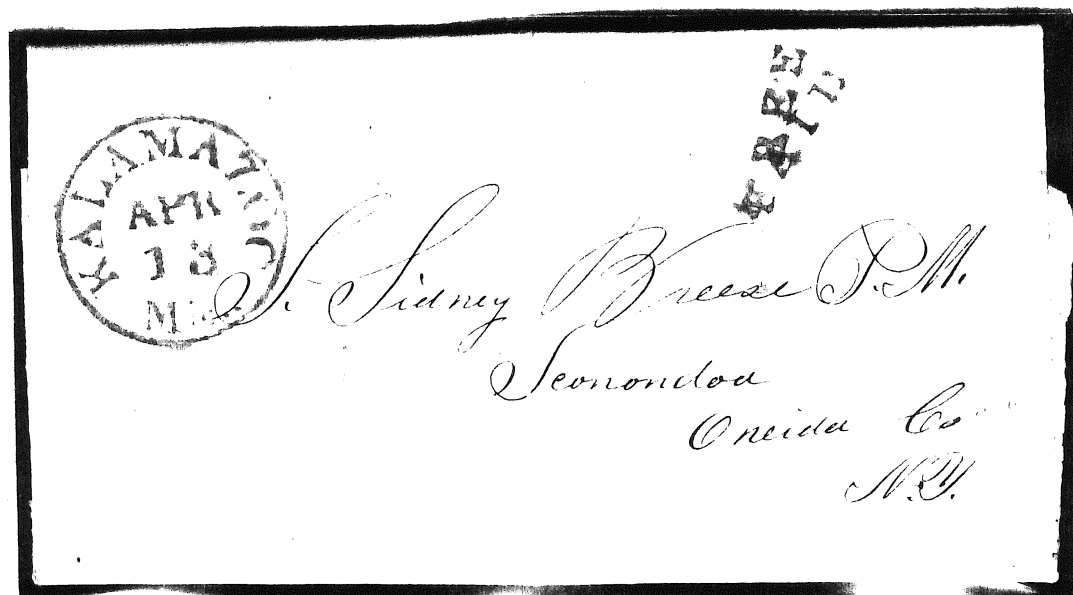 KALAMAZOO
APR
13
Mic
FREE
S. Sidney Breese P.M.
Sconondoa
Oneida Co
N.Y.